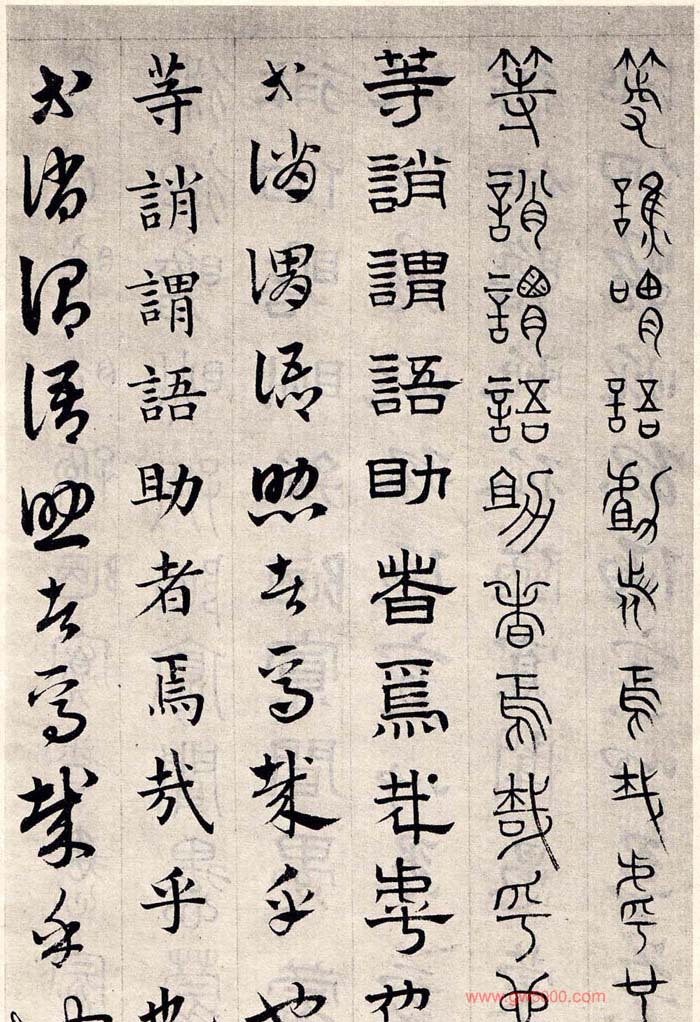 等誚謂語助者焉哉乎也
等誚謂語助者焉哉乎也
等誚謂語助者焉哉乎也
等誚謂語助者焉哉乎也
等誚謂語助者焉哉乎也
等誚謂語助者焉哉乎也
www.gw8000.com